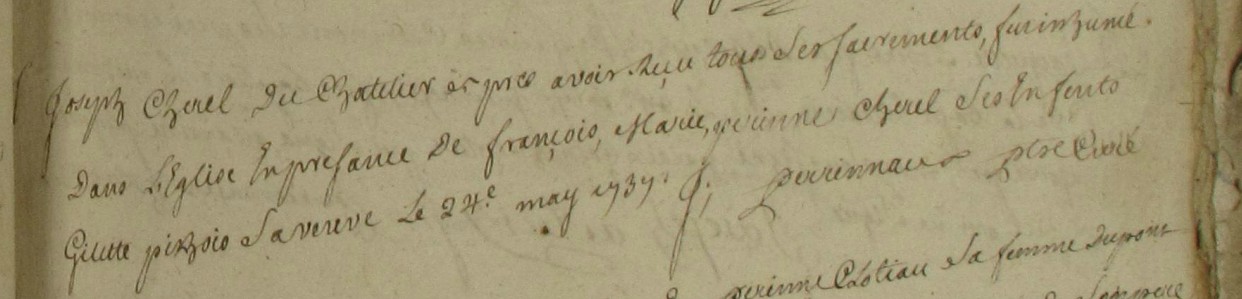 Joseph Cherel Du Chatelier es pres avoir Reçu tous Ses sacrements, fut inhumé
Dans L'Eglise En presance De françois, Marie, perinne Cherel Ses Enfents
Gilette Saveuve Le 24.e may 1737. J. perrinnaux ptre Curé
perinne sa femme Dupont